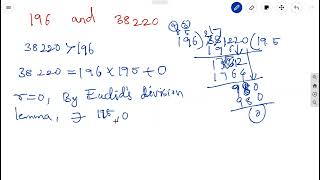 196 and 38220
38220 > 196
38220 = 196 × 195 + 0
r = 0, By Euclid's division
lemma, ∃ 195, 0
196) 38220 (195
196
1862
1764
980
980
0